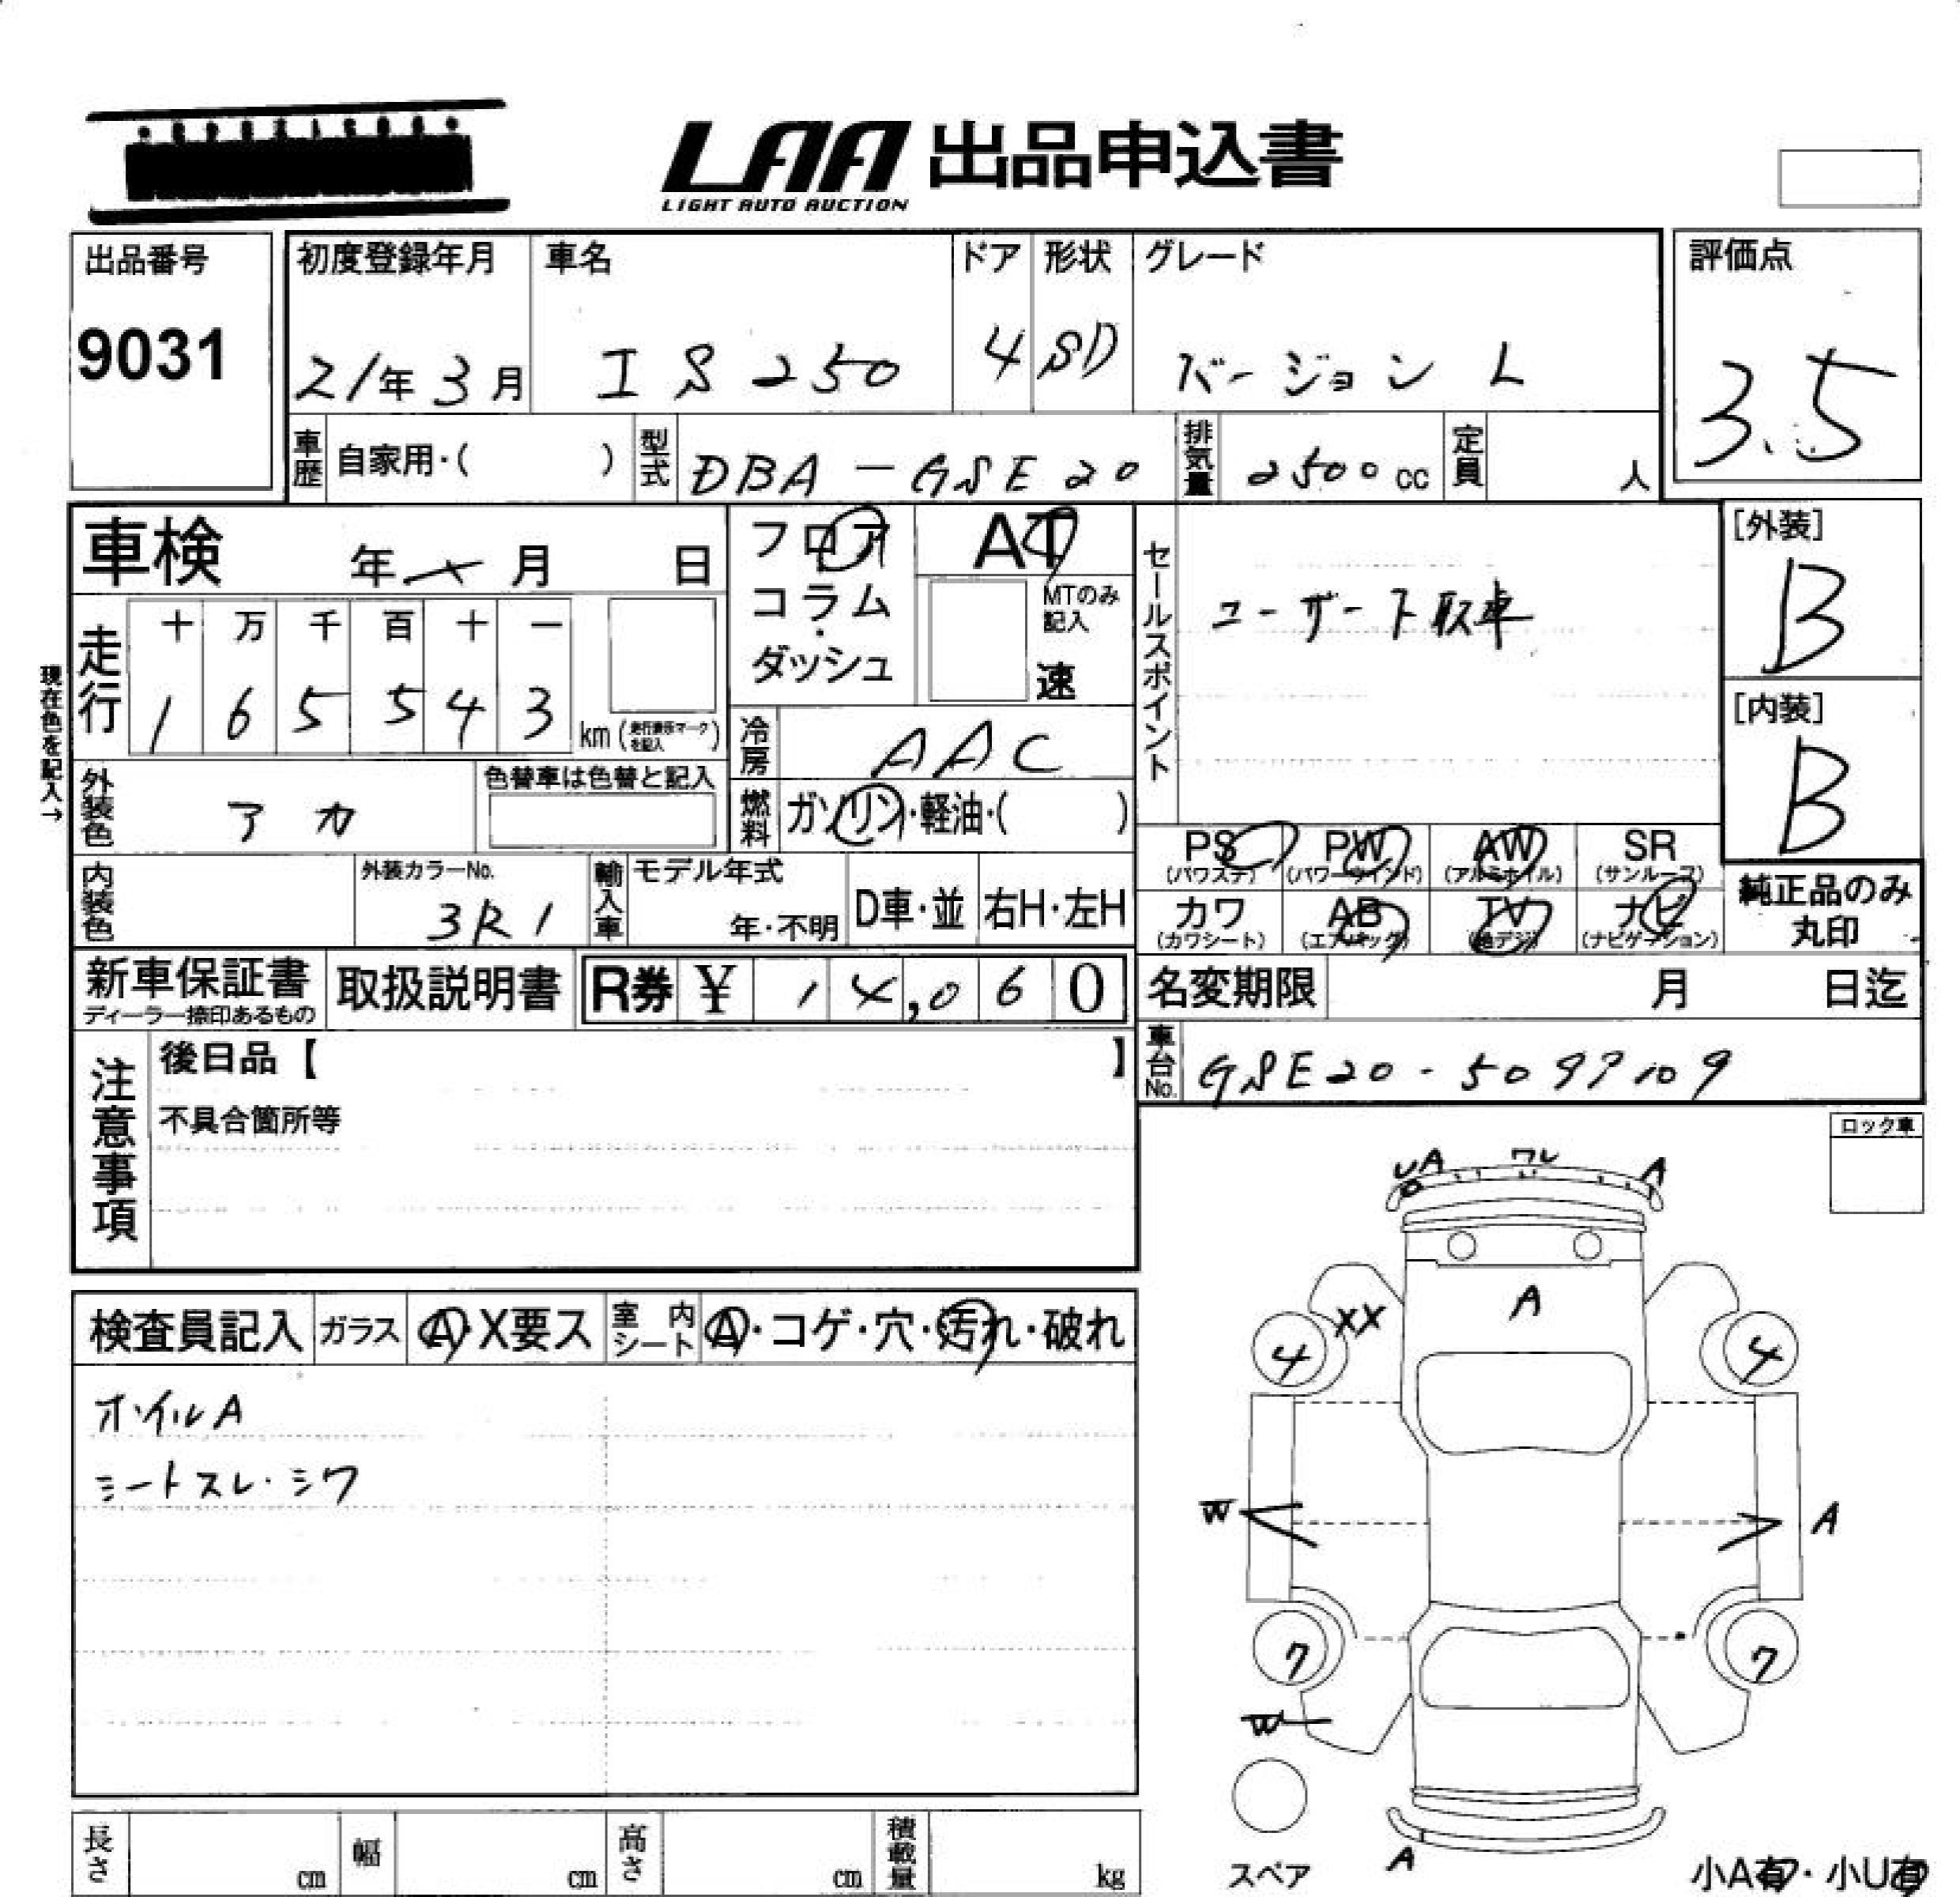 LAA 出品申込書
LIGHT AUTO AUCTION
出品番号
9031
初度登録年月
21年3月
車名
IS250
ドア
4
形状
SD
グレード
バージョン L
評価点
3.5
車歴
自家用・( )
型式
DBA-GSE20
排気量
2500cc
定員
人
車検
年 月 日
フロア
コラム
・
ダッシュ
AT
MTのみ
記入
速
セールスポイント
ユーザー下取車
[外装]
B
[内装]
B
現在色を記入→
走行
十 万 千 百 十 一
1 6 5 5 4 3
km
を記入
冷房
AAC
外装色
アカ
色替車は色替と記入
燃料
ガソリン・軽油・( )
PS
(パワステ)
PW
(パワーウインド)
AW
(アルミホイル)
SR
(サンルーフ)
カワ
(カワシート)
AB
(エアバッグ)
TV
(地デジ)
ナビ
(ナビゲーション)
純正品のみ
丸印
内装色
外装カラーNo.
3R1
輸入車
モデル年式
年・不明
D車・並
右H・左H
新車保証書
ディーラー捺印あるもの
取扱説明書
R券 ¥ 14,060
名変期限
月 日迄
車台No.
注意事項
後日品【 】
不具合箇所等
ロック車
検査員記入
ガラス
A・X要ス
室内シート
A・コゲ・穴・汚れ・破れ
ホイルA
シートスレ・シワ
UA ワレ A
A
XX
4 4
W A
7 7
W
A
スペア
小A有・小U有
長さ
cm
幅
cm
高さ
cm
積載量
kg